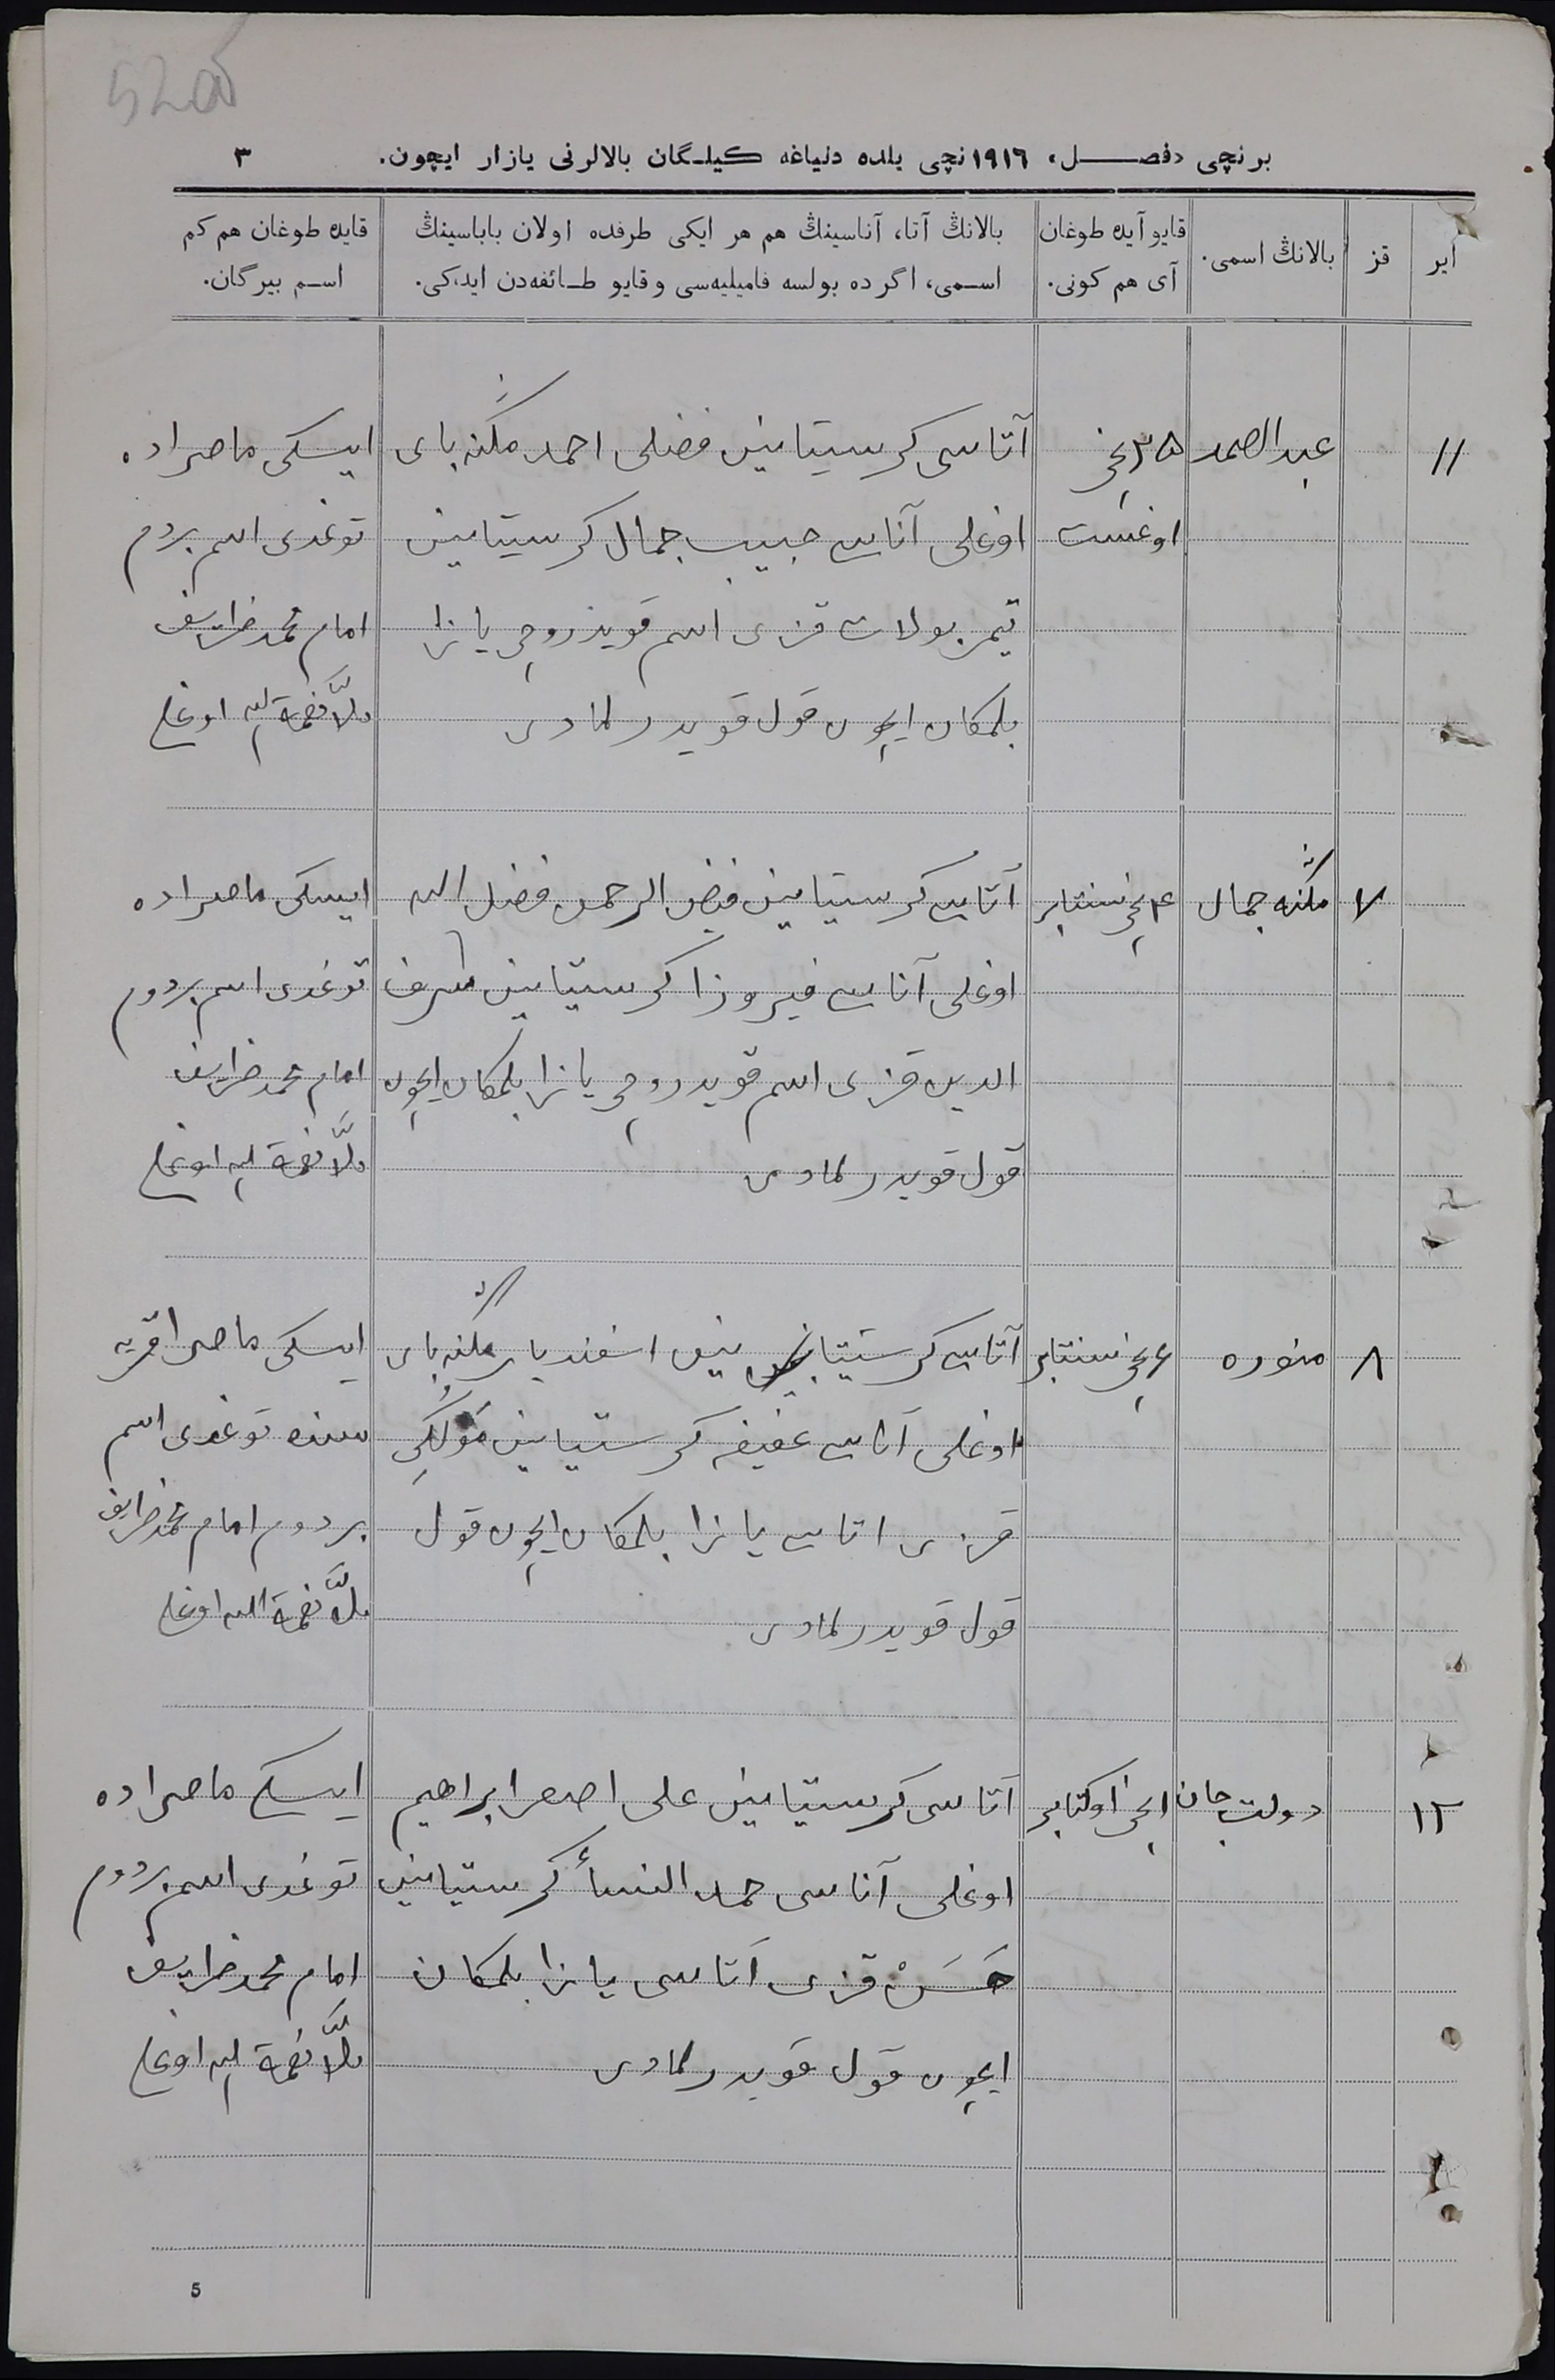 برنچی «فصل» ١٩١٦ نچی یلده دنیاغه کیلگان بالالرنی یازار ایچون. ٣
ایر
قز
بالانڭ اسمی.
قایو آیده طوغان
آی هم کونی.
بالانڭ آتا، آناسینڭ هم هر ایکی طرفده اولان باباسینڭ
اسمی، اگر ده بولسه فامیلیه‌سی و قایو طائفه‌دن ایدکی.
قایده طوغان هم کم
اسم بیرگان.
١١ عبد الصمد ٢٥نچی آتاسی کرستیانین فضلی احمد منکنه بای ایسکی ماصراده
اوغست اوغلی آناسی حبیب جمال کرستیانین توغدی اسم بردم
تیمر بولات قزی اسم قویدروچی یازا امام محمد ضرایف
بلمکان ایچون قول قویدرلمادی ملا نعمة الله اوغلی
٧ منکنه جمال ٤نچی سنتابر آتاسی کرستیانین فیض الرحمن فضل الله ایسکی ماصراده
اوغلی آناسی فیروزا کرستیانین شرف توغدی اسم بردم
الدین قزی اسم قویدروچی یازا بلمکان ایچون امام محمد ضرایف
قول قویدرلمادی ملا نعمة الله اوغلی
٨ منوره ٤نچی سنتابر آتاسی کرستیانین اسفندیار منکنه بای ایسکی ماصرا قریه
اوغلی آناسی عفیفه کرستیانین سنده توغدی اسم
قزی اتاسی یازا بلمکان ایچون قول بردم امام محمد ضرایف
قول قویدرلمادی ملا نعمة الله اوغلی
١٢ دولت جان ١نچی اوکتابر آتاسی کرستیانین علی اصغر ابراهیم ایسکی ماصراده
اوغلی آناسی حمد النسأ کرستیانین توغدی اسم بردم
حَسَنْ قزی آتاسی یازا بلمکان امام محمد ضرایف
ایچون قول قویدرلمادی ملا نعمة الله اوغلی
5